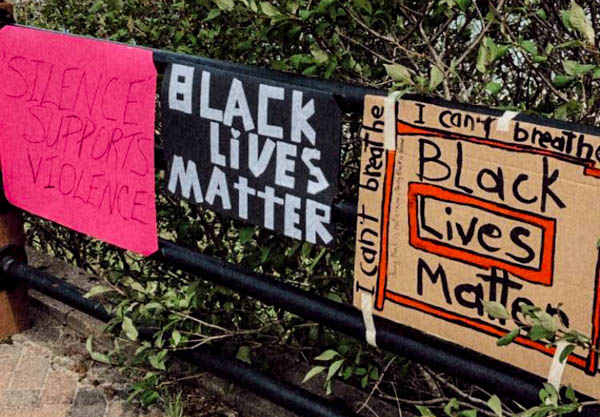 SILENCE
SUPPORTS
VIOLENCE
BLACK
LiVES
MATTER
I can't breathe
I can't breathe
Black
Lives
Matter